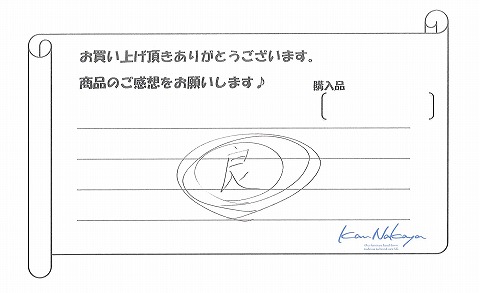 お買い上げ頂きありがとうございます。
商品のご感想をお願いします♪
購入品
良
Kan Nakaya